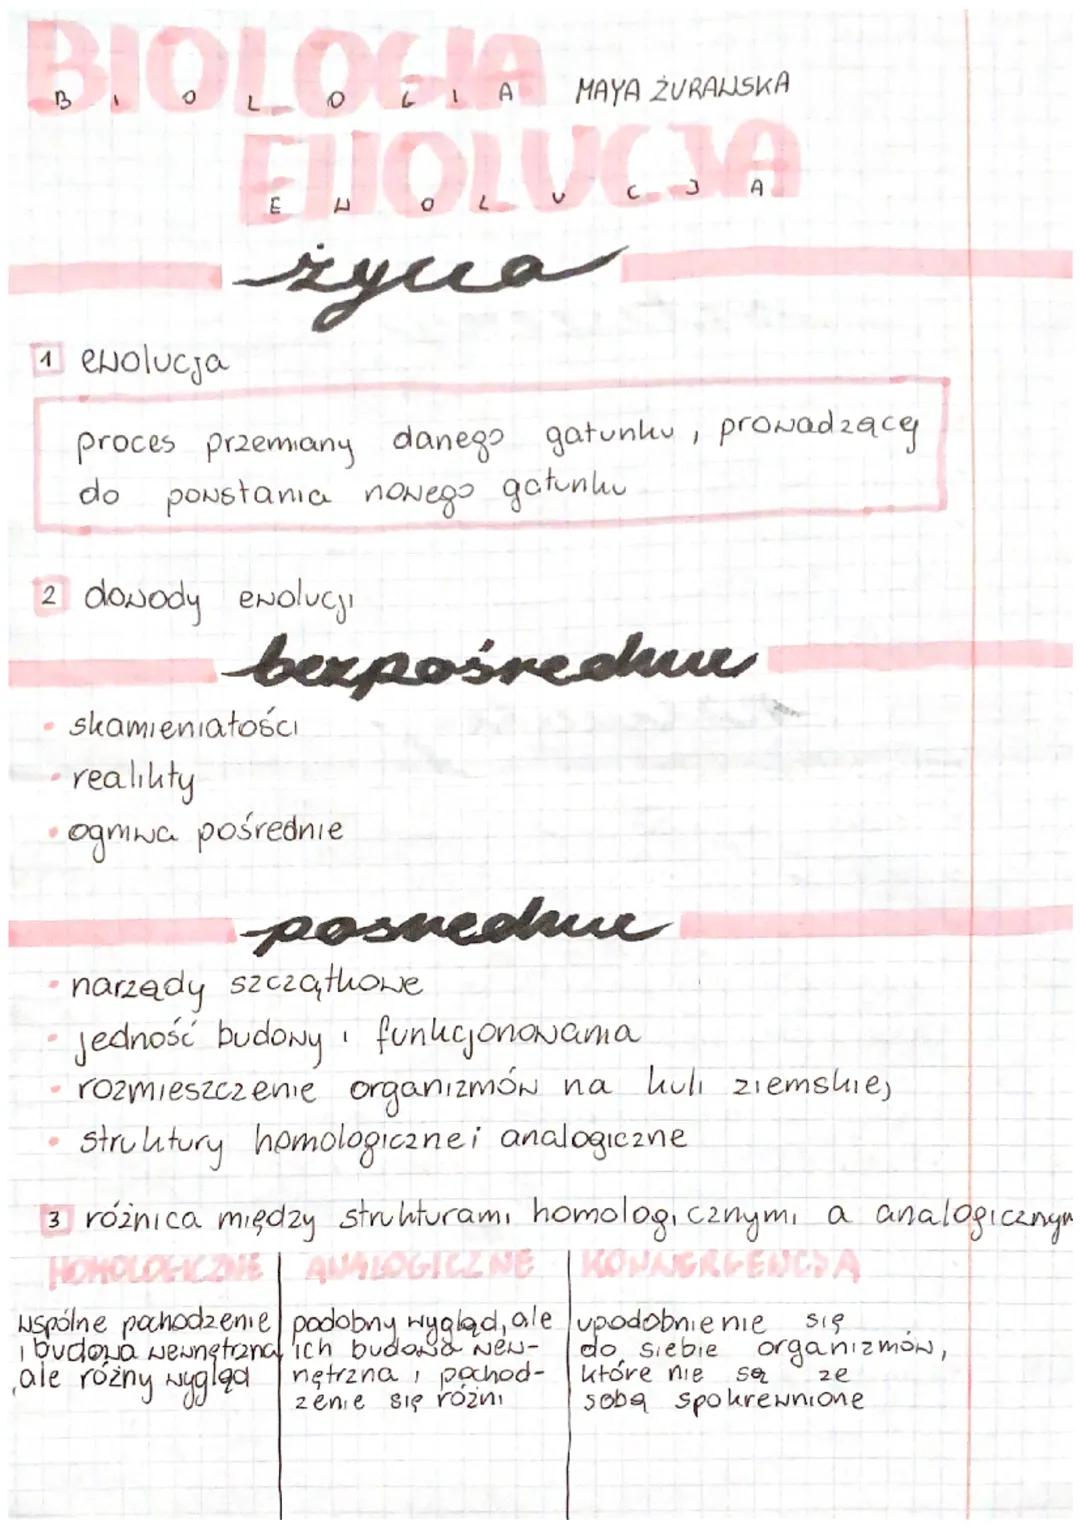 BIOLOGIA
B I O L O G I A MAYA ŻURAWSKA
EWOLUCJA
E W O L U C J A
życia
1 ewolucja
proces przemiany danego gatunku, prowadzący
do powstania nowego gatunku
2 dowody ewolucji
bezpośrednie
• skamieniałości
• realikty
• ogniwa pośrednie
posrednie
• narządy szczątkowe
• jedność budowy i funkcjonowania
• rozmieszczenie organizmów na kuli ziemskiej
• struktury homologiczne i analogiczne
3 różnica między strukturami homologicznymi a analogicznym
HOMOLOGICZNE | ANALOGICZNE | KONWERGENCJA
wspólne pochodzenie | podobny wygląd, ale | upodobnienie się
i budowa wewnętrzna | ich budowa wew- | do siebie organizmów,
,ale różny wygląd | nętrzna i pochod- | które nie są ze
zenie się różni | sobą spokrewnione